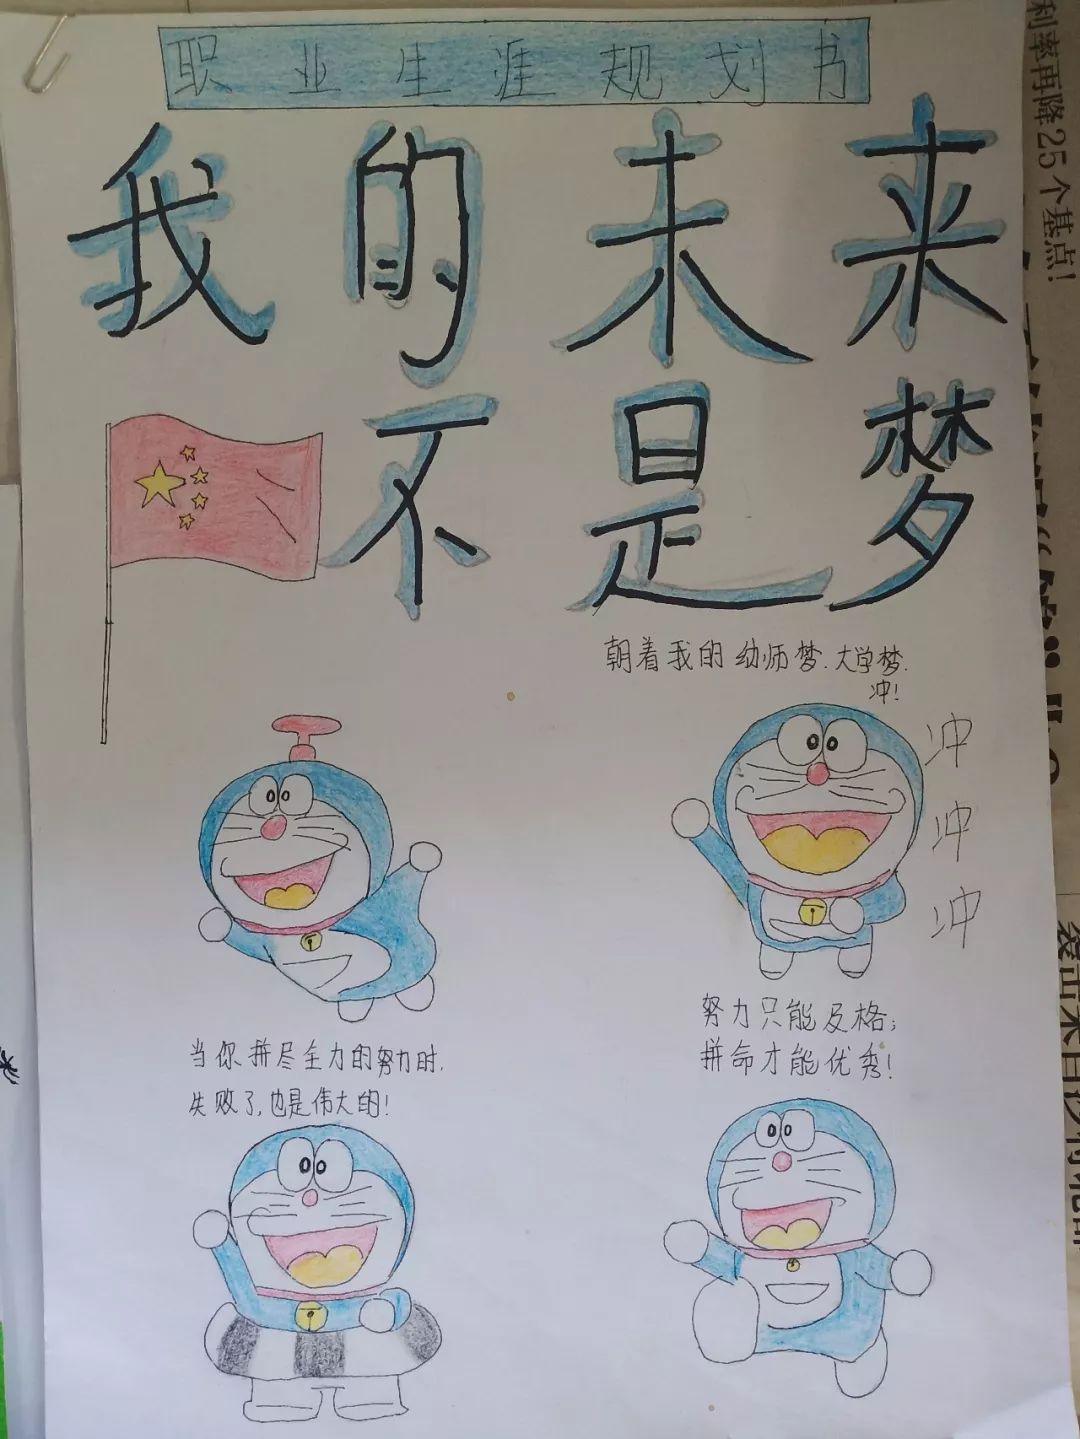 职业生涯规划书
我的未来
不是梦
朝着我的幼师梦.大学梦.
冲!
冲
冲
冲
当你拼尽全力的努力时,
失败了,也是伟大的!
努力只能及格;
拼命才能优秀!
利率再降25个基点!